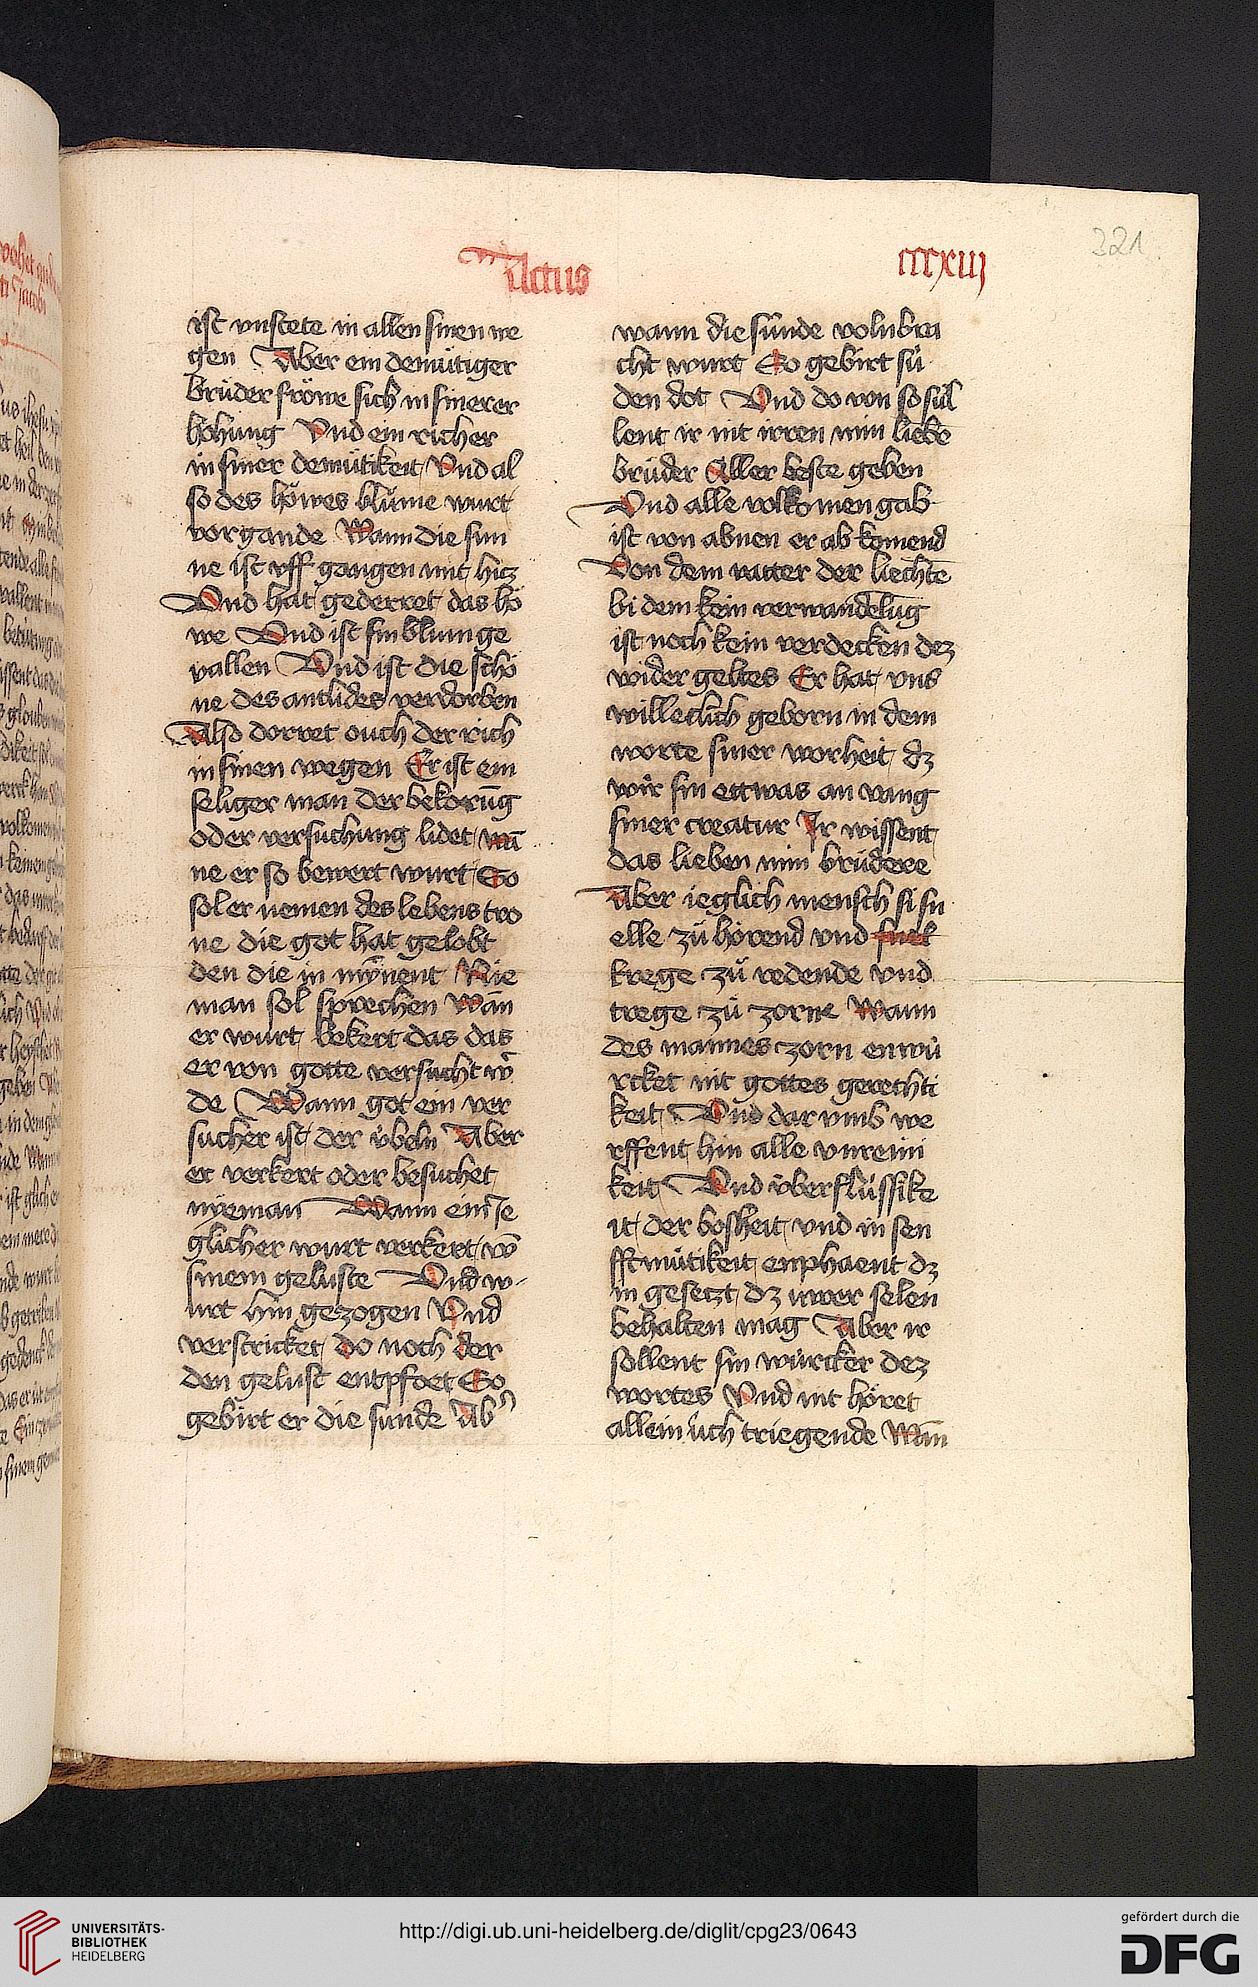 Actus
cccxiij
321
ist vnstete in allen sinen we
gen Aber ein demuͤtiger
bruͤder froͤwe sich in sinerer
hoͤhung Vnd ein richer
in siner demuͤtikeit Vnd al
so des hoͤwes bluͦme wurt
vorgande Wann die sun
ne ist vff gangen mit hicz
Vnd hat gederret das hoͤ
we Vnd ist sin blum ge
vallen Vnd ist die schoͤ
ne des antlides verdorben
Also dorret ouch der rich
in sinen wegen Er ist ein
seliger man der bekorūg
oder versuchung lidet wā
ne er so bewert wurt So
sol er nemen des lebens cro
ne die got hat gelobt
den die in mÿnent Nie
man sol sprechen wān
er wurt bekert das das
er von gotte versucht wr̄
de Wann got ein ver
sucher ist der uͤbeln Aber
er verkert oder besuchet
nÿeman Wann ein Ie
glicher wurt verkert vō
sinem geluste Vnd w
urt hin gezogen Vnd
verstricket do noch der
den gelust entpfoet So
gebirt er die sunde Ab
wann die suͤnde volnbra
cht wurt So gebirt suͤ
den dot Vnd do von so suͤl
lent ir nit irren min liebē
bruͤder Aller beste geben
Vnd alle volkomen gab
ist von abnen er ab komend
Von dem vatter der liechte
bi dem kein verwandelūg
ist noch kein verdecken dez
wider geltes Er hat vns
willeclich geborn in dem
worte siner worheit dz
wir sin ettwas an vang
siner creatur Ir wissent
das lieben min bruͤdere
Aber ieglich mensch si sn
elle zuͦ hoͤrend vnd snel
trege zuͦ redende vnd
trege zuͦ zorne Wann
des mannes zorn enwuͤ
rcket nit gottes gerechti
keit Vnd dar vmb we
rffent hin alle vnreini
keit Vnd uͤberfluͤssike
it der bosheit vnd in sen
fftmuͤtikeit enphaent dz
in gesetzt dz uwer selen
behalten mag Aber ir
sollent sin wuͤrcker dez
wortes Vnd nit hoͤret
allein uͤch triegende Wān
UNIVERSITÄTS-
BIBLIOTHEK
HEIDELBERG
http://digi.ub.uni-heidelberg.de/diglit/cpg23/0643
gefördert durch die
DFG